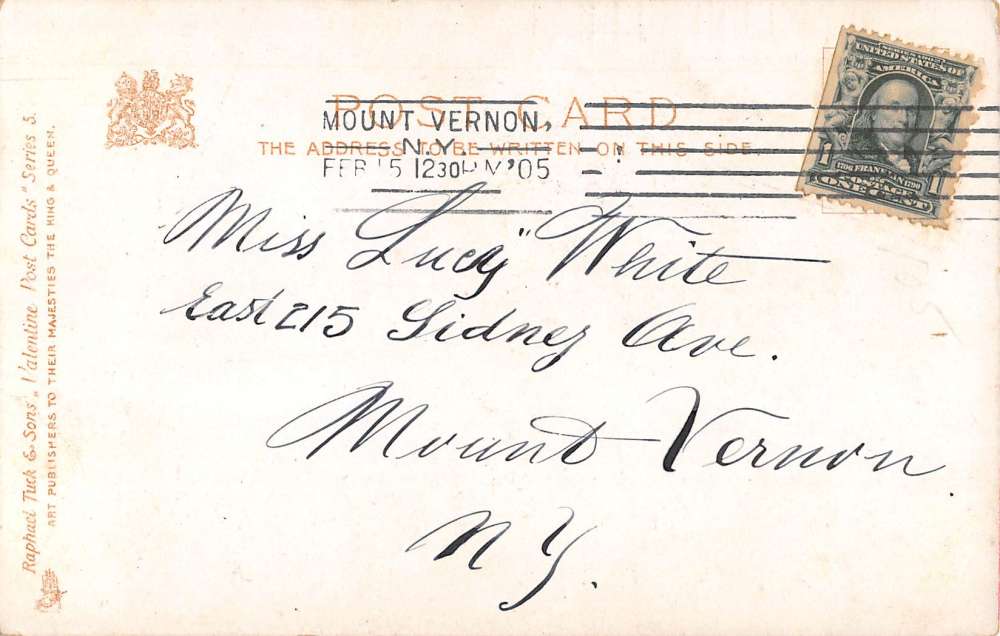 POST CARD
THE ADDRESS TO BE WRITTEN ON THIS SIDE.
MOUNT VERNON,
N.Y.
FEB 15 1230PM '05
SERIES 1902
UNITED STATES OF
AMERICA
1706 FRANKLIN 1790
POSTAGE
1 ONE CENT 1
Miss "Lucy" White
East 215 Sidney Ave.
Mount Vernon
N Y.
Raphael Tuck & Sons' "Valentine Post Cards" Series 5.
ART PUBLISHERS TO THEIR MAJESTIES THE KING & QUEEN.